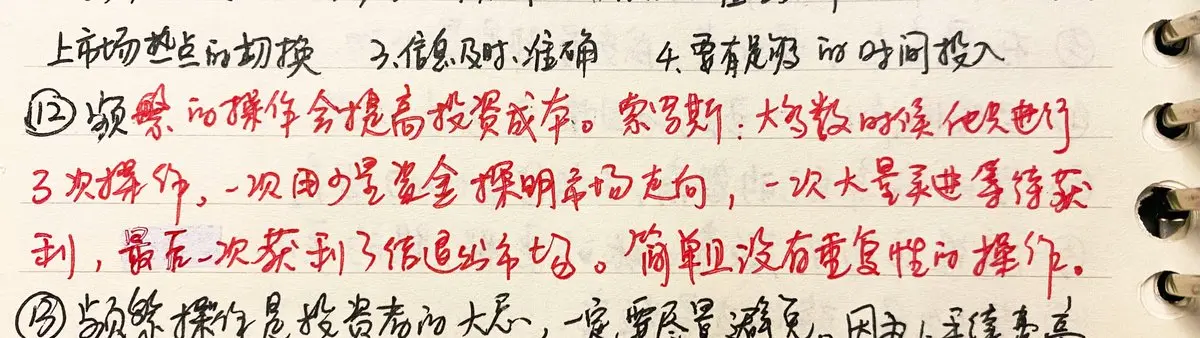 上市场热点的切换 3、信息及时、准确 4、要有足够的时间投入
⑫频繁的操作会提高投资成本。索罗斯：大多数时候他只进行
3次操作,一次用少量资金探明市场走向，一次大量买进等待获
利，最后一次获利了结退出市场。简单且没有重复性的操作。
⑬频繁操作是投资者的大忌，一定要尽量避免。因为1、手续费高